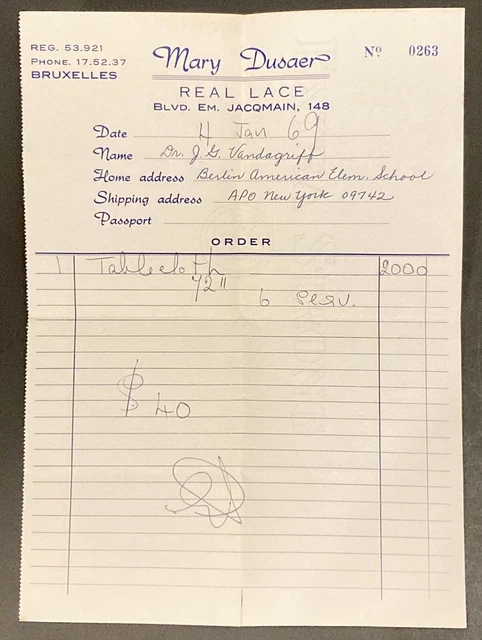 REG. 53.921
PHONE. 17.52.37
BRUXELLES
Mary Dusaer
Nº 0263
REAL LACE
BLVD. EM. JACQMAIN, 148
Date 4 Jan 69
Name Dr. J. G. Vandagriff
Home address Berlin American Elem. School
Shipping address APO New York 09742
Passport
ORDER
1 Tablecloth 2000
72"
6 serv.
$ 40